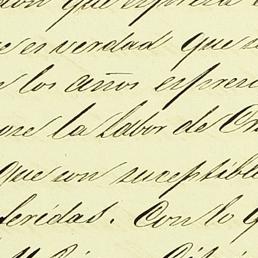 que espresa
es verdad que
los años espres
la labor de
que son suceptible
feridas. Con lo q